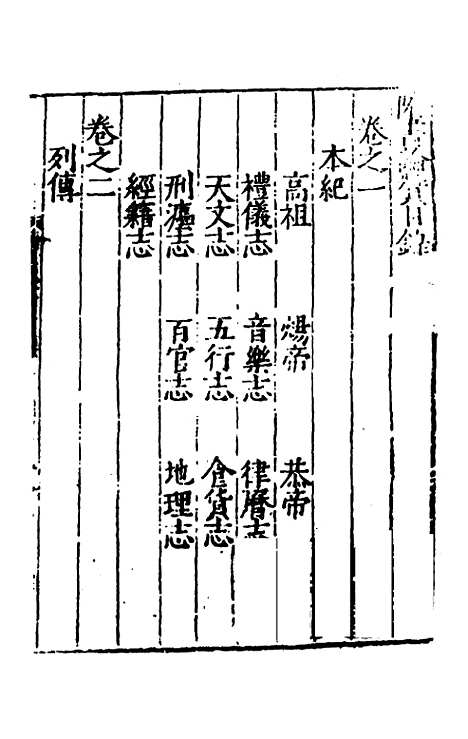 卷之一
本紀
高祖 煬帝 恭帝
禮儀志 音樂志 律曆志
天文志 五行志 食貨志
刑灋志 百官志 地理志
經籍志
卷之二
列傳